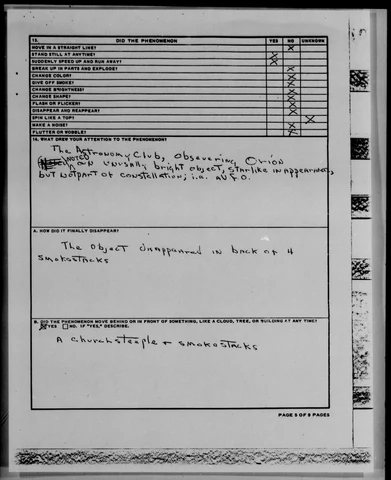 15. DID THE PHENOMENON YES NO UNKNOWN
MOVE IN A STRAIGHT LINE? X
STAND STILL AT ANYTIME? X
SUDDENLY SPEED UP AND RUN AWAY? X
BREAK UP IN PARTS AND EXPLODE? X
CHANGE COLOR? X
GIVE OFF SMOKE? X
CHANGE BRIGHTNESS? X
CHANGE SHAPE? X
FLASH OR FLICKER? X
DISAPPEAR AND REAPPEAR? X
SPIN LIKE A TOP? X
MAKE A NOISE? X
FLUTTER OR WOBBLE? X
16. WHAT DREW YOUR ATTENTION TO THE PHENOMENON?
The Astronomy Club, observering Orion
NOTED AN unusally bright object, starlike in appearance,
but not part of constellation; i.e. a UFO.
A. HOW DID IT FINALLY DISAPPEAR?
The object disappeared in back of 4
smokestacks
B. DID THE PHENOMENON MOVE BEHIND OR IN FRONT OF SOMETHING, LIKE A CLOUD, TREE, OR BUILDING AT ANY TIME?
X YES NO. IF "YES," DESCRIBE.
A churchsteeple + smokostacks
PAGE 5 OF 9 PAGES